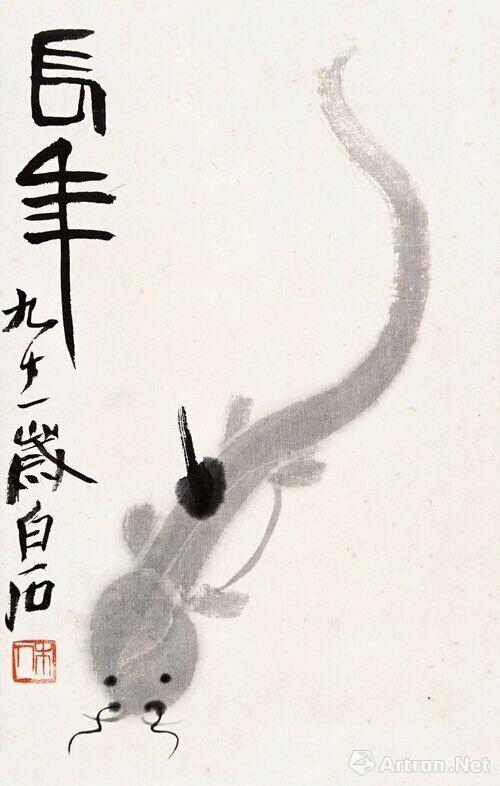 長年
九十一歲白石
木人
Artron.Net